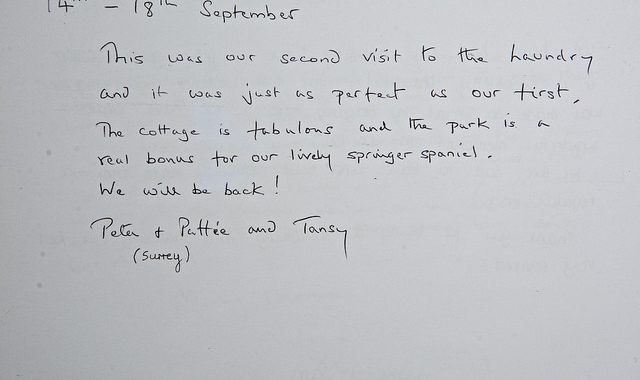 14th - 18th September
This was our second visit to the Laundry
and it was just as perfect as our first.
The cottage is fabulous and the park is a
real bonus for our lively springer spaniel.
We will be back!
Peter + Pattie and Tansy
(Surrey)